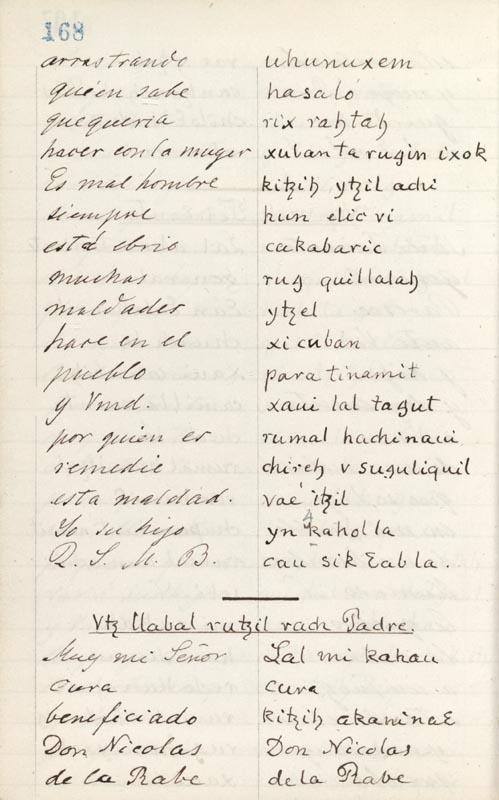 168
arrastrando uhunuxem
quien sabe hasaló
que queria rix raḩtaḩ
hacer con la muger xubanta rugin ixok
Es mal hombre kitziḩ ytzil achi
siempre hun elic vi
está ebrio cakabaric
muchas rug quillalaḩ
maldades ytzel
hace en el xi cuban
pueblo para tinamit
y Vmd. xaui lal tagut
por quien es rumal hachinaui
remedie chireḩ v suguliquil
esta maldad. vaé itzil
Yo su hijo yn kaholla
Q. S. M. B. cau sik Ɛabla.
Vtz llabal rutzil rach Padre.
Muy mi Señor Lal mi kahau
cura cura
beneficiado kitziḩ akaninaƐ
Don Nicolas Don Nicolas
de la Rabe de la Rabe